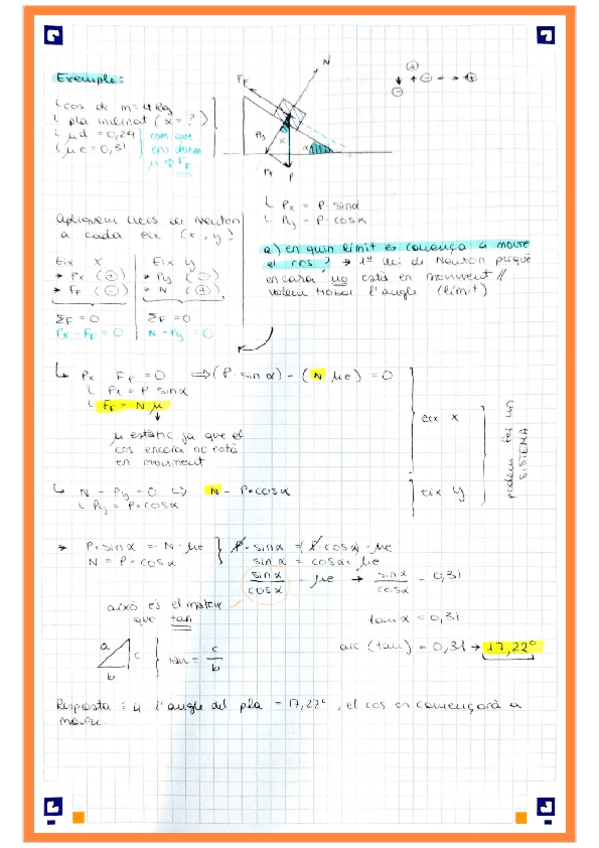 Exemple:
cos de m = 4 kg
pla inclinat (α = ?)
μd = 0,29
μe = 0,31
com que
ens donen
μ → Ff
Ff
N
Py
α
α
Px
P
Px = P · sinα
Py = P · cosα
Apliquem lleis de Newton
a cada eix (x, y)
Eix X
→ Px (+)
→ Ff (-)
ΣF = 0
Px - Ff = 0
Eix y
→ Py (-)
→ N (+)
ΣF = 0
N - Py = 0
a) en quin límit es comença a moure
el cos? → 1ª llei de Newton perquè
encara no està en moviment //
volem trobar l'angle (límit)
Px Ff = 0 ⟹ (P · sin α) - (N μe) = 0
Px = P sinα
Ff = N μ
μ estàtic ja que el
cos encara no està
en moviment
eix x
N - Py = 0 ↪ N = P·cosα
Py = P·cosα
eix y
podem fer un
SISTEMA
→ P·sinα = N·μe
N = P·cosα
P·sinα = P·cosα · μe
sinα = cosα · μe
sinα / cosα = μe → sinα / cosα = 0,31
això és el mateix
que tan
tanα = 0,31
a
c
b
tan = c / b
arc (tan) = 0,31 → 17,22º
Resposta: si l'angle del pla = 17,22º, el cos en començarà a
moure.